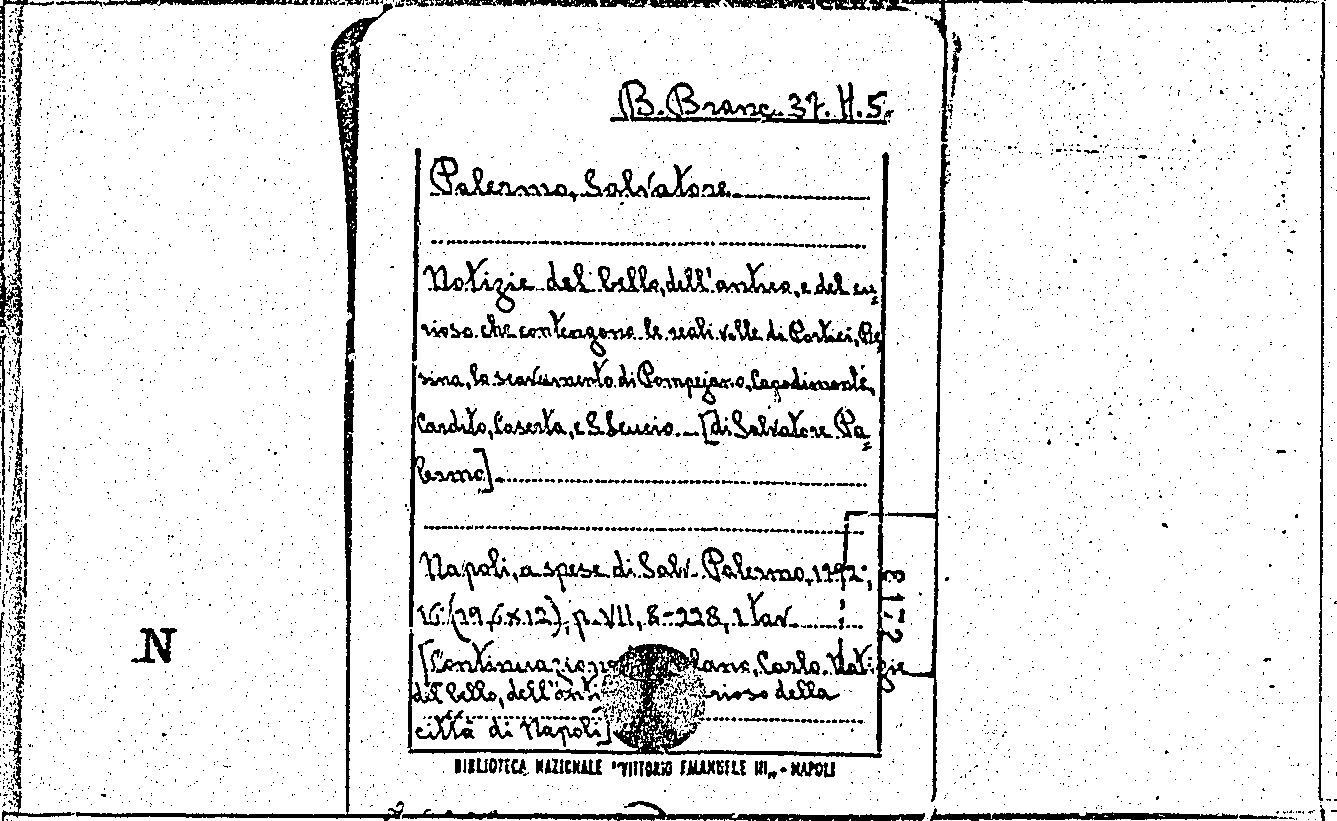 B. Branc. 37. H. 5.
Palermo, Salvatore
Notizie del bello, dell'antico, e del cu=
rioso che contengono le reali ville di Portici, Re=
sina, lo scavamento di Pompejano, Capodimonte,
Cardito, Caserta, e S. Leucio. [di Salvatore Pa=
lermo]
Napoli, a spese di Salv. Palermo, 1792;
16° (19,6x12), p. VII, 8-228, 1 tav.
[Continuazione lano, Carlo. Notizie
del bello, dell'anti rioso della
città di Napoli]
3172
N
BIBLIOTECA NAZIONALE "VITTORIO EMANUELE III„ - NAPOLI